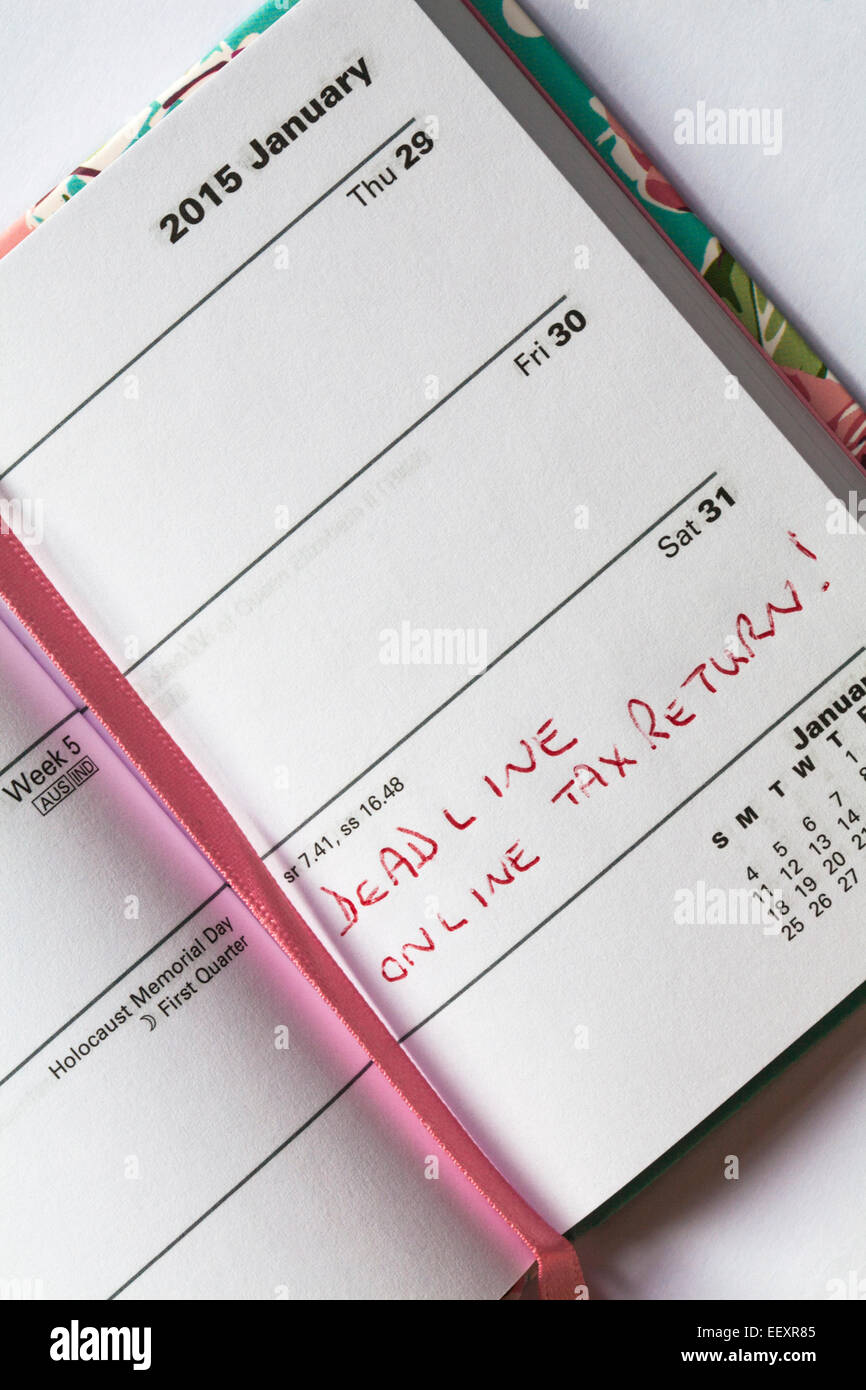 2015 January
Thu 29
Fri 30
Sat 31
sr 7.41, ss 16.48
DEADLINE
ONLINE TAX RETURN!
Januar
S M T W T F
1
4 5 6 7 8
11 12 13 14 15
18 19 20 21
25 26 27
Week 5
AUS IND
Holocaust Memorial Day
First Quarter
alamy
alamy
Image ID: EEXR85
www.alamy.com